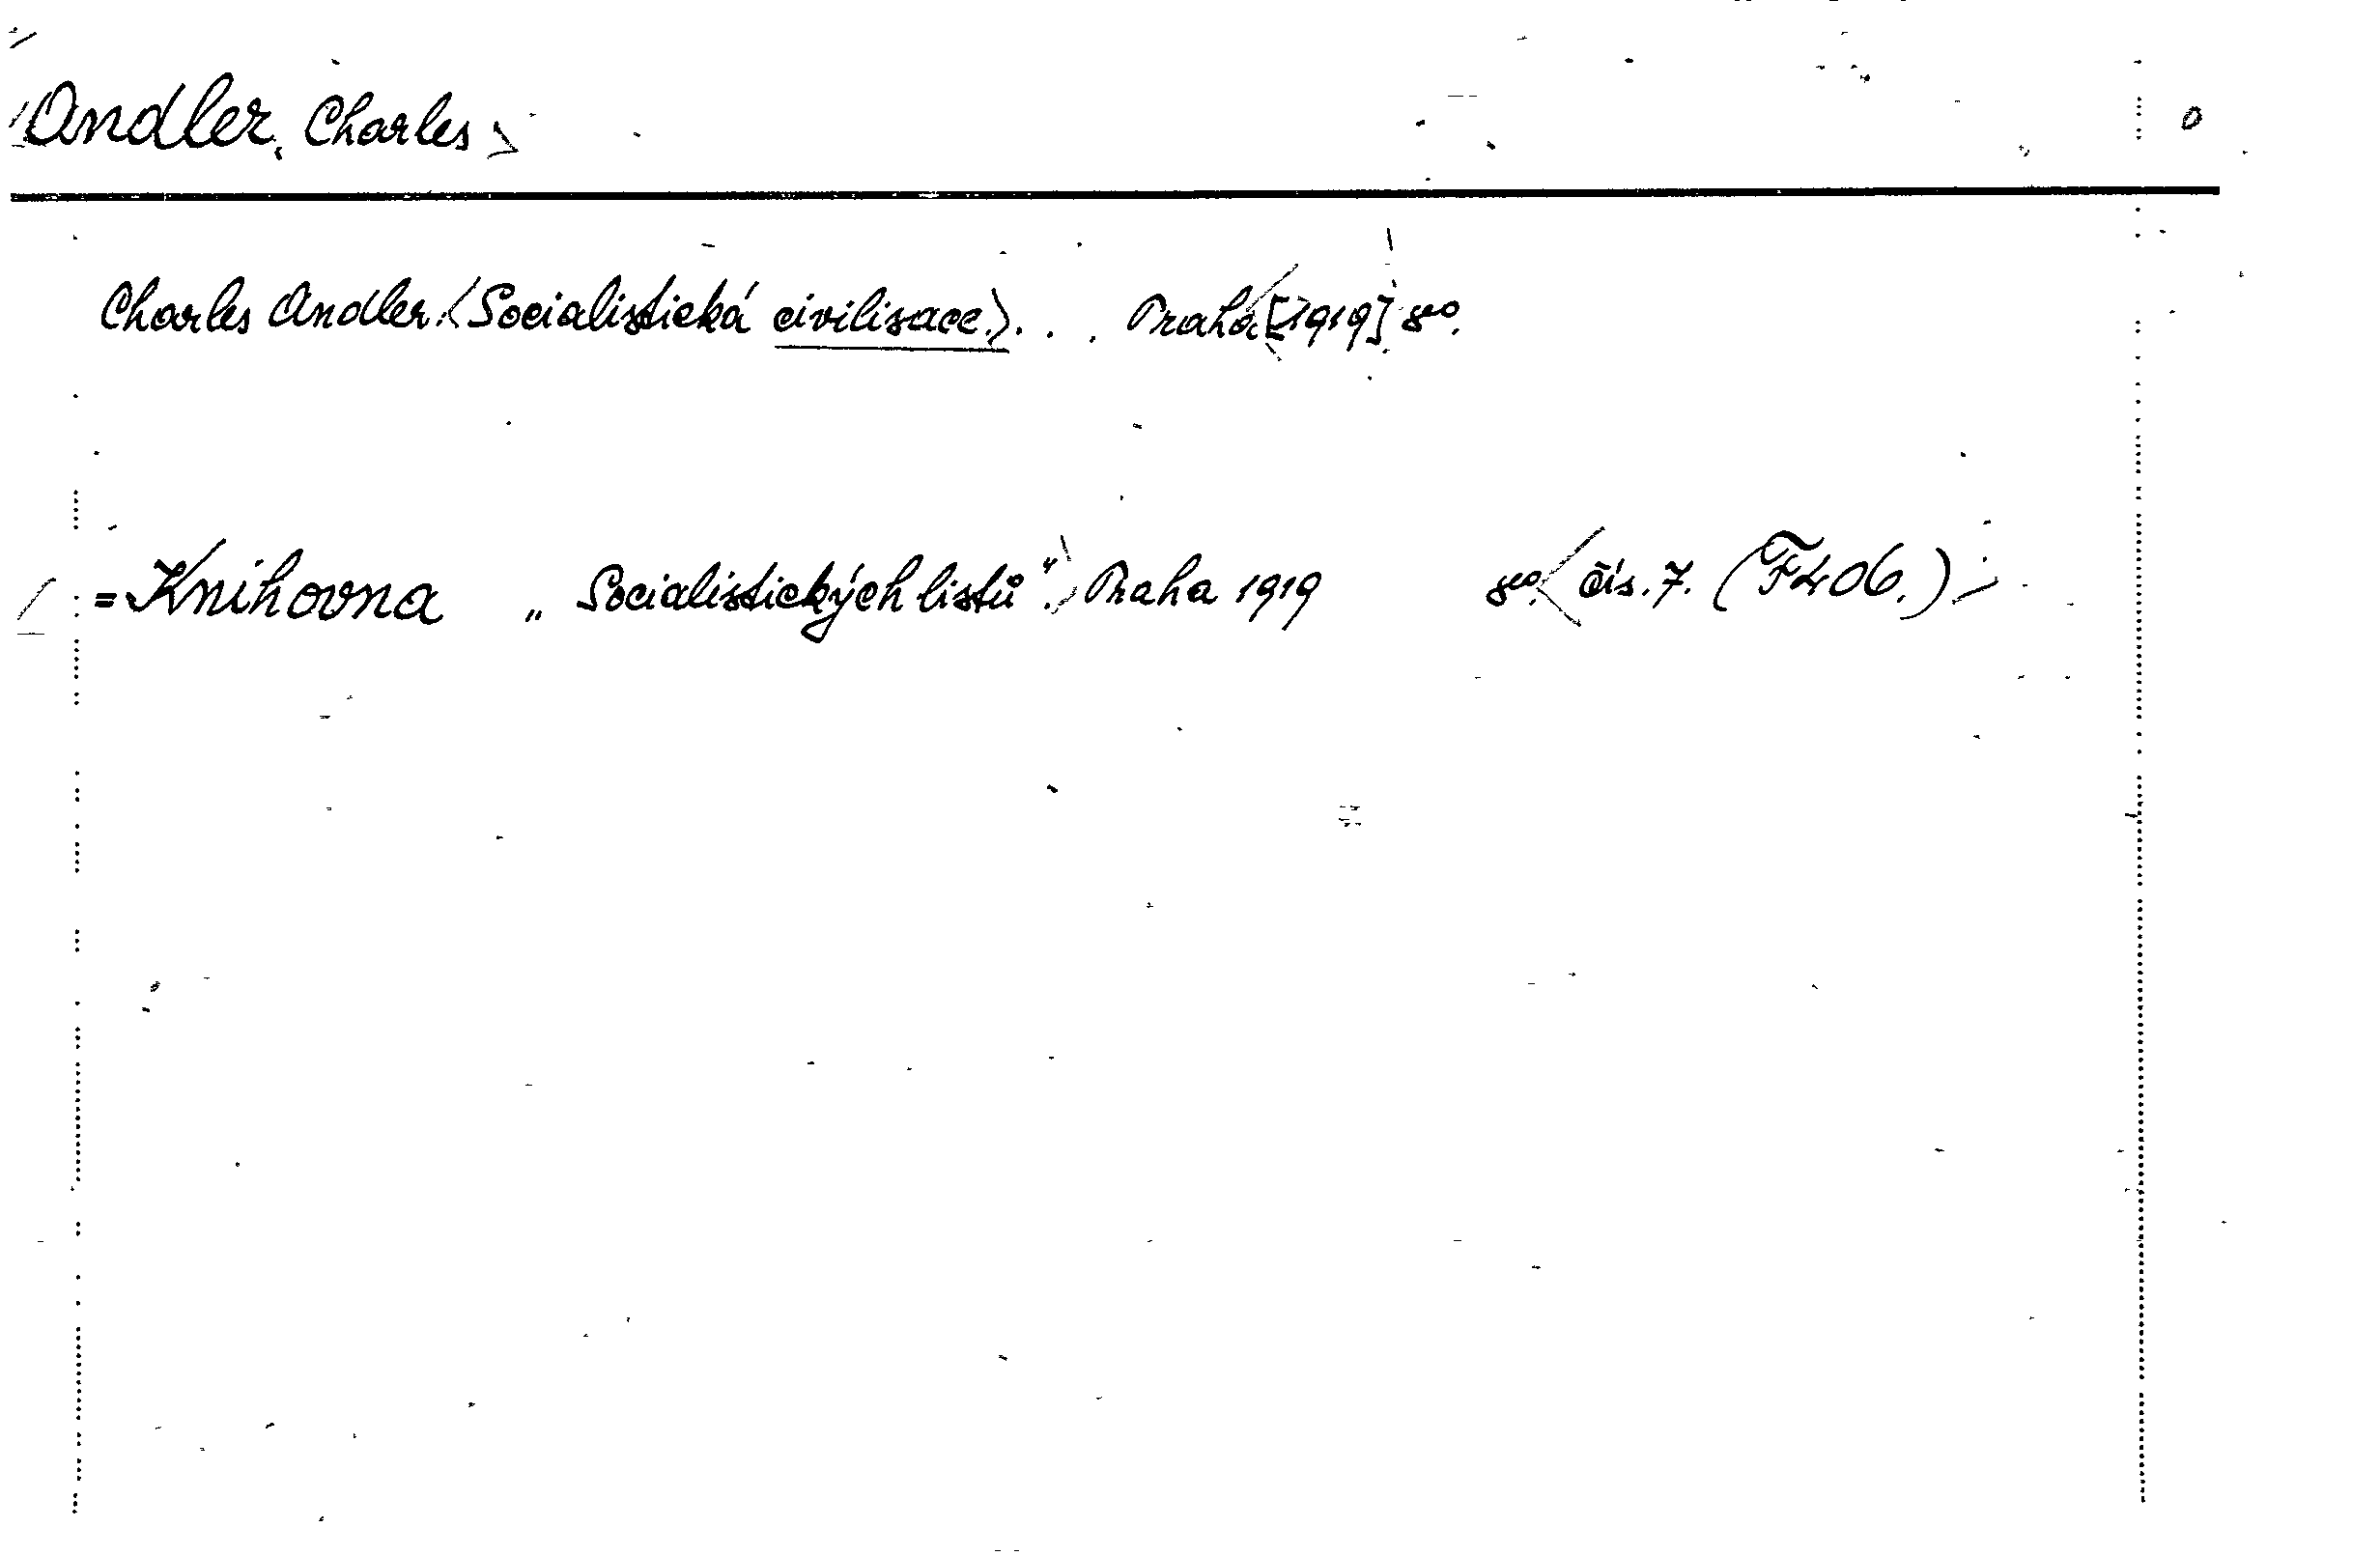 Andler, Charles 0
Charles Andler. Socialistická civilisace. . . Praha [1919] 8°.
= Knihovna „Socialistických listů“. Praha 1919 8°. čís. 7. (F406.)